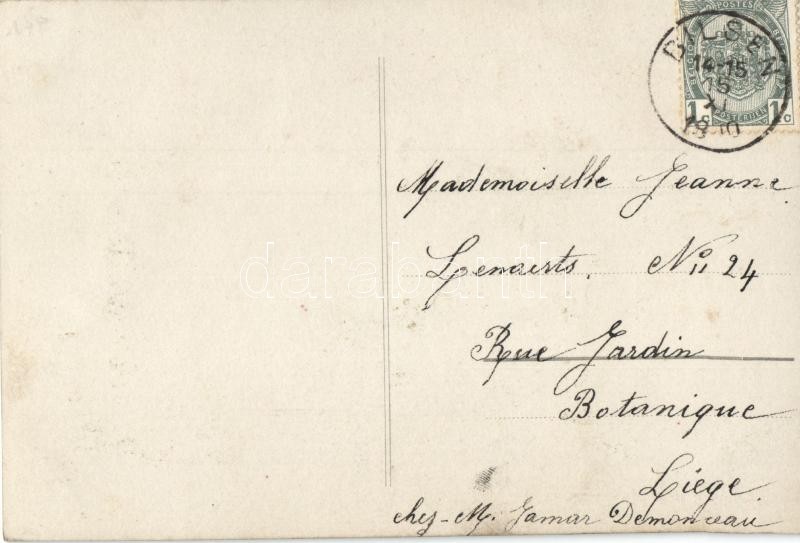 POSTES
BILSEN
14-15
15
XI
1910
1c 1c
POSTERIJEN
Mademoiselle Jeanne
Lenaerts. No 24
Rue Jardin
Botanique
Liège
chez M. Jamar Demonceau
darabanth